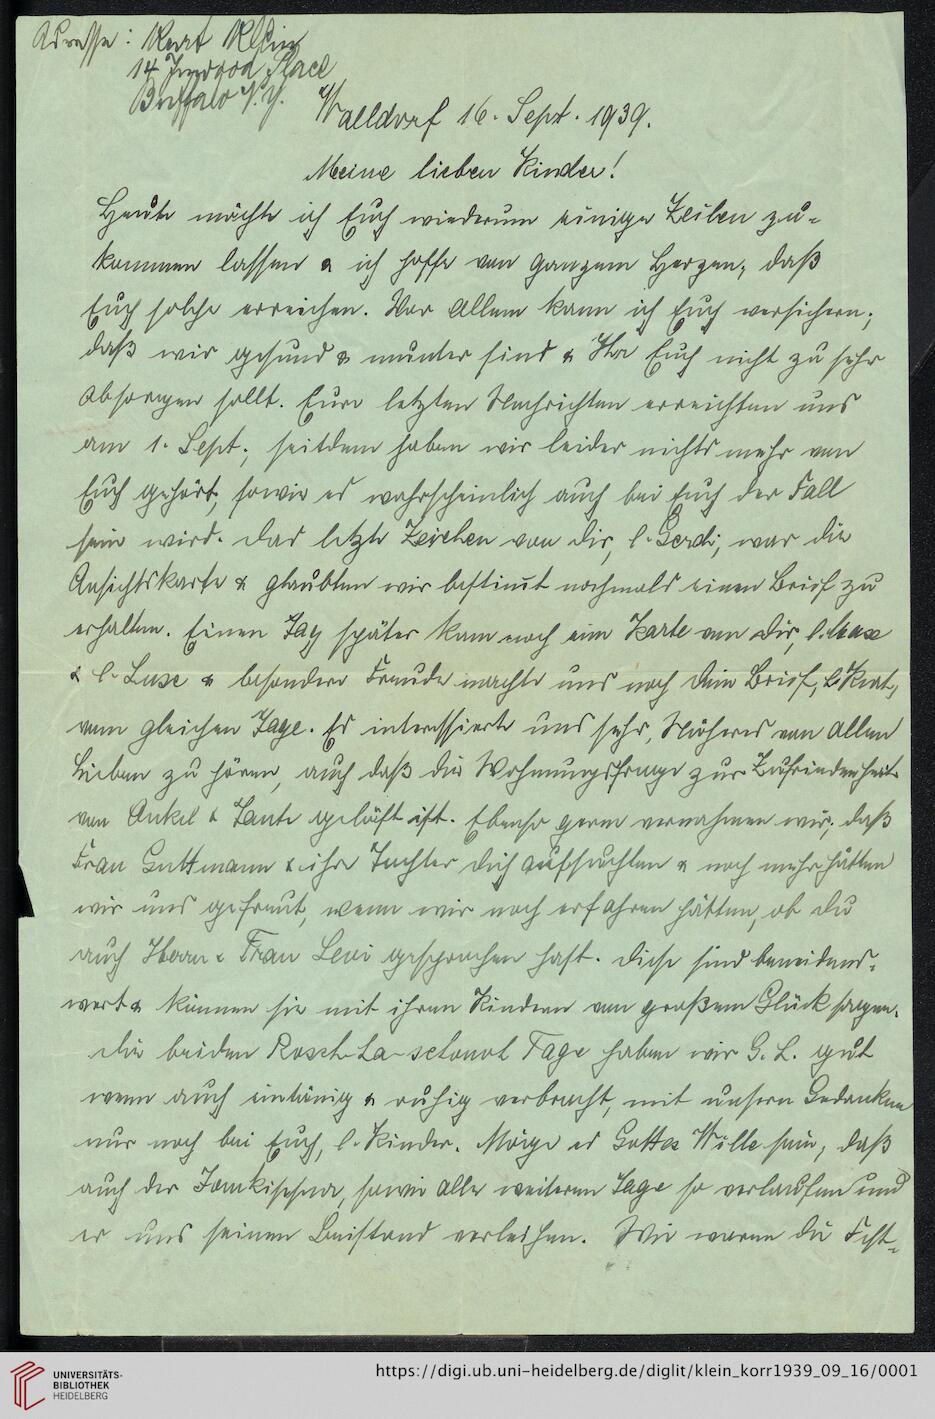 Adresse: Kurt Klein
14 Inwood Place
Buffalo N.Y.
Walldorf 16. Sept. 1939.
Meine lieben Kinder!
Heute möchte ich Euch wiederum einige Zeilen zu-
kommen lassen & ich hoffe von ganzem Herzen, daß
Euch solche erreichen. Vor allem kann ich Euch versichern,
daß wir gesund & munter sind & Ihr Euch nicht zu sehr
absorgen sollt. Eure letzten Nachrichten erreichten uns
am 1. Sept., seitdem haben wir leider nichts mehr von
Euch gehört, sowie es wahrscheinlich auch bei Euch der Fall
sein wird. Das letzte Zeichen von dir, l. Gerdi, war die
Ansichtskarte & glaubten wir bestimmt nochmals einen Brief zu
erhalten. Einen Tag später kam noch eine Karte von dir, l. Max
& l. Luse & besondere Freude machte uns noch dein Brief, l. Kurt,
vom gleichen Tage. Es interessierte uns sehr, Näheres von allen
Lieben zu hören, auch daß die Wohnungsfrage zur Zufriedenheit
von Onkel & Tante gelöst ist. Ebenso gern vernahmen wir, daß
Frau Guttmann & ihre Tochter dich aufsuchten & noch mehr hätten
wir uns gefreut, wenn wir noch erfahren hätten, ob du
auch Herrn & Frau Levi gesprochen hast. Diese sind beneidens-
wert & können sie mit ihren Kindern von großem Glück sagen.
Die beiden Rosch-ha-schonoh Tage haben wir G. L. gut
wenn auch eintönig & ruhig verbracht, mit unsern Gedanken
nur noch bei Euch, l. Kinder. Möge es Gottes Wille sein, daß
auch der Jomkippur, sowie alle weiteren Tage so verlaufen und
er uns seinen Beistand verleihen. Wir waren die Fest-
UNIVERSITÄTS-
BIBLIOTHEK
HEIDELBERG
https://digi.ub.uni-heidelberg.de/diglit/klein_korr1939_09_16/0001